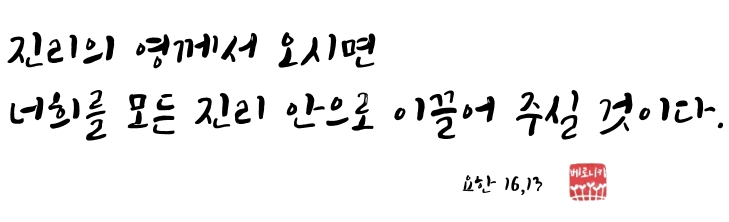 진리의 영께서 오시면
너희를 모든 진리 안으로 이끌어 주실 것이다.
요한 16,13
베로니카